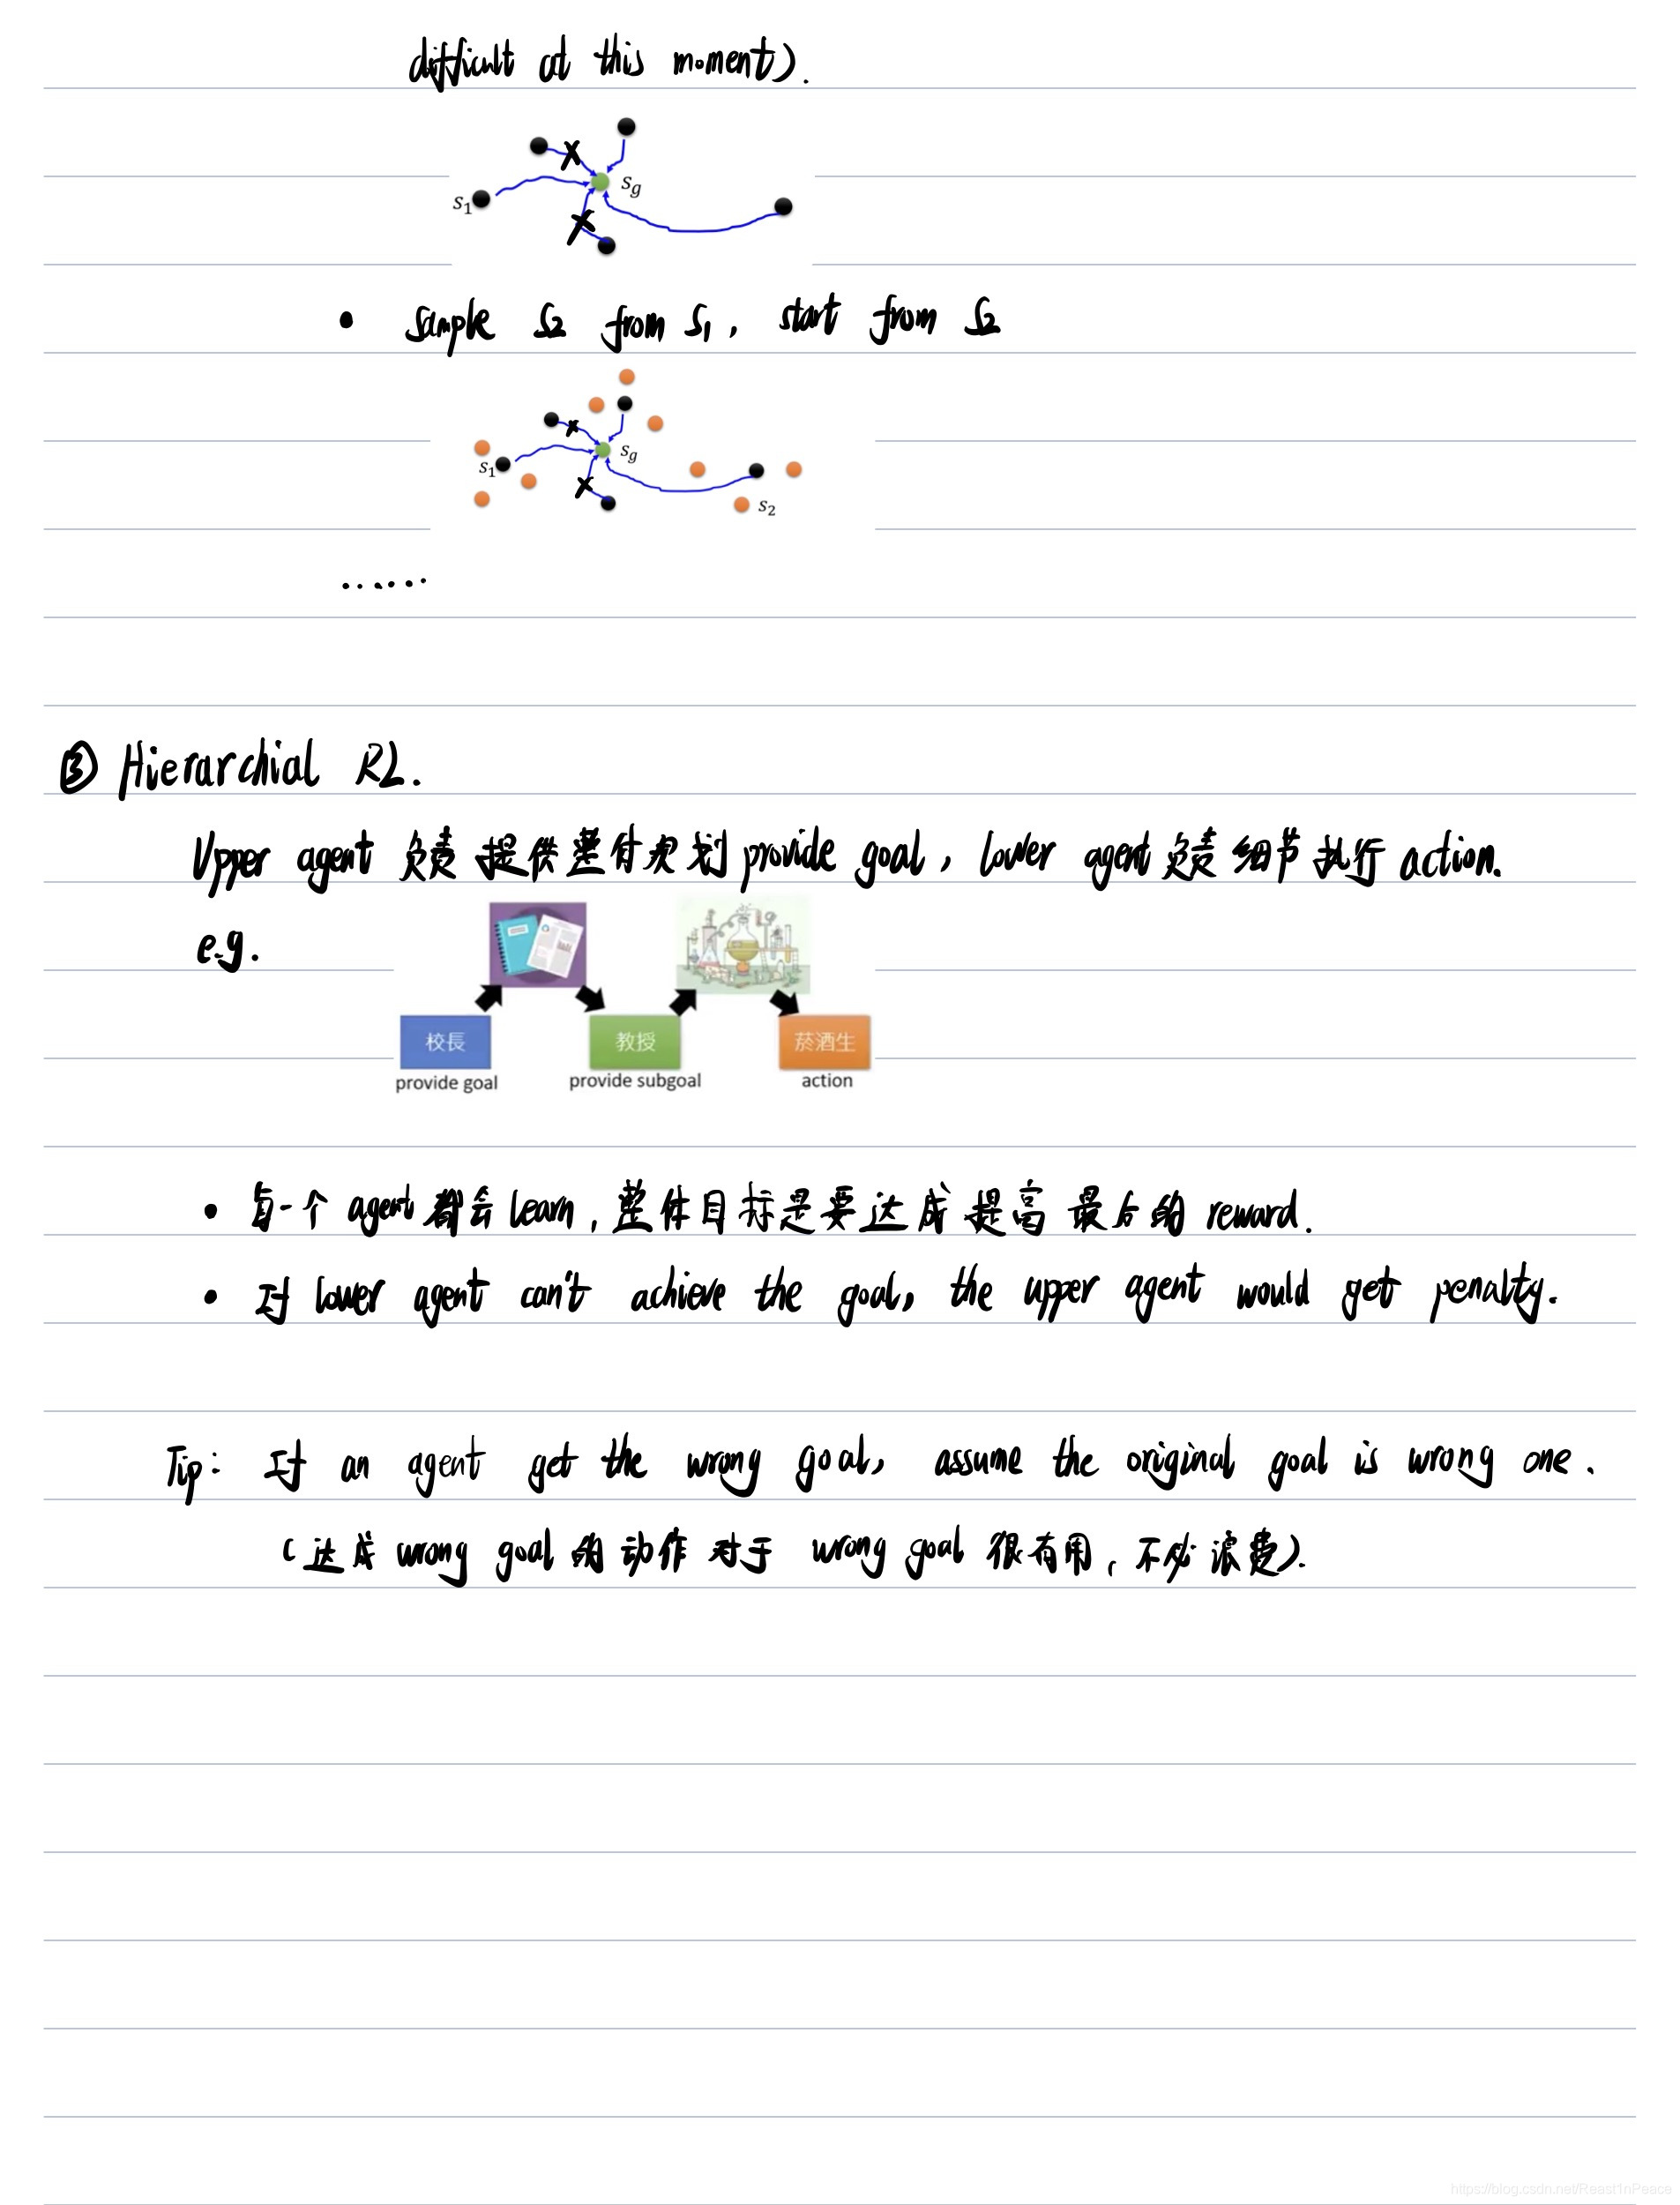 difficult at this moment).
s1
sg
• sample S2 from S1, start from S2
s1
sg
s2
......
③ Hierarchial RL.
Upper agent 负责提供整体规划 provide goal, lower agent 负责细节执行 action.
e.g.
校長 教授 菸酒生
provide goal provide subgoal action
• 每一个 agent 都会 learn, 整体目标是要达成提高最后的 reward.
• If lower agent can't achieve the goal, the upper agent would get penalty.
Tip: If an agent get the wrong goal, assume the original goal is wrong one.
(达成 wrong goal 的动作对于 wrong goal 很有用, 不必浪费).
https://blog.csdn.net/Reast1nPeace